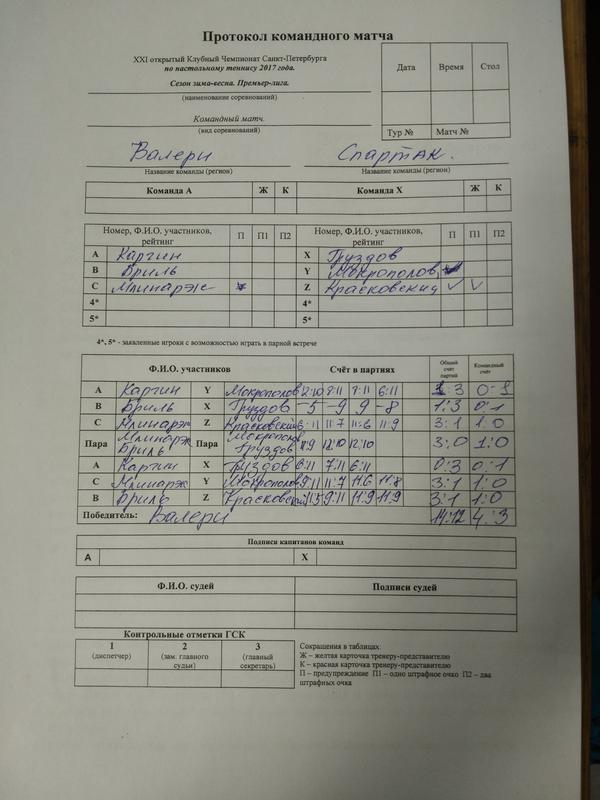 Протокол командного матча
XXI открытый Клубный Чемпионат Санкт-Петербурга
по настольному теннису 2017 года.
Сезон зима-весна. Премьер-лига.
(наименование соревнований)
Командный матч.
(вид соревнований)
Дата Время Стол
Тур № Матч №
Валери Спартак.
Название команды (регион) Название команды (регион)
Команда А Ж К Команда X Ж К
Номер, Ф.И.О. участников, рейтинг П П1 П2 Номер, Ф.И.О. участников, рейтинг П П1 П2
A Каргин X Груздов
B Бриль Y Мокрополов
C Млинарж Z Красковский
4* 4*
5* 5*
4*, 5* - заявленные игроки с возможностью играть в парной встрече
Ф.И.О. участников Счёт в партиях Общий счет партий Командный счёт
A Каргин Y Мокрополов 7:11 6:11 :3 0-1
B Бриль X Груздов -5 -9 9 -8 1:3 0:1
C Млинарж Z Красковский 11:7 11:6 11:9 3:1 1:0
Пара Млинарж Бриль Пара Мокрополов Груздов 11:9 12:10 12:10 3:0 1:0
A Каргин X Груздов 6:11 7:11 6:11 0:3 0:1
C Млинарж Y Мокрополов 9:11 11:7 11:6 11:8 3:1 1:0
B Бриль Z Красковский 9:11 11:9 11:9 3:1 1:0
Победитель: Валери 14:12 4:3
Подписи капитанов команд
A X
Ф.И.О. судей Подписи судей
Контрольные отметки ГСК
1 (диспетчер) 2 (зам. главного судьи) 3 (главный секретарь)
Сокращения в таблицах:
Ж – желтая карточка тренеру-представителю
К – красная карточка тренеру-представителю
П – предупреждение П1 – одно штрафное очко П2 – два
штрафных очка